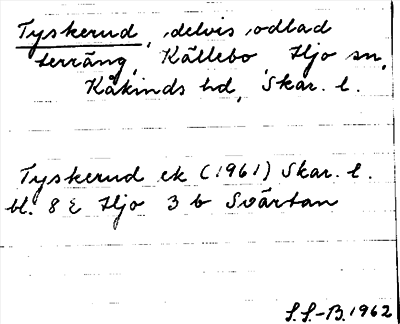 Tyskerud, delvis odlad
terräng, Källebo, Hjo sn,
Kåkinds hd, Skar. l.
Tyskerud ek (1961) Skar. l.
bl. 8 E Hjo 3 b Svärtan
S.S.-B. 1962